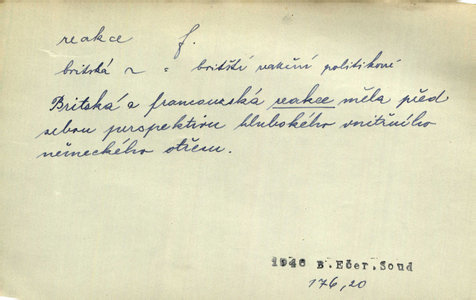 reakce f.
britská ~ = britští reakční politikové
Britská a francouzská reakce měla před
sebou perspektivu hlubokého vnitřního
německého otřesu.
1946 B.Ečer,Soud
176,20